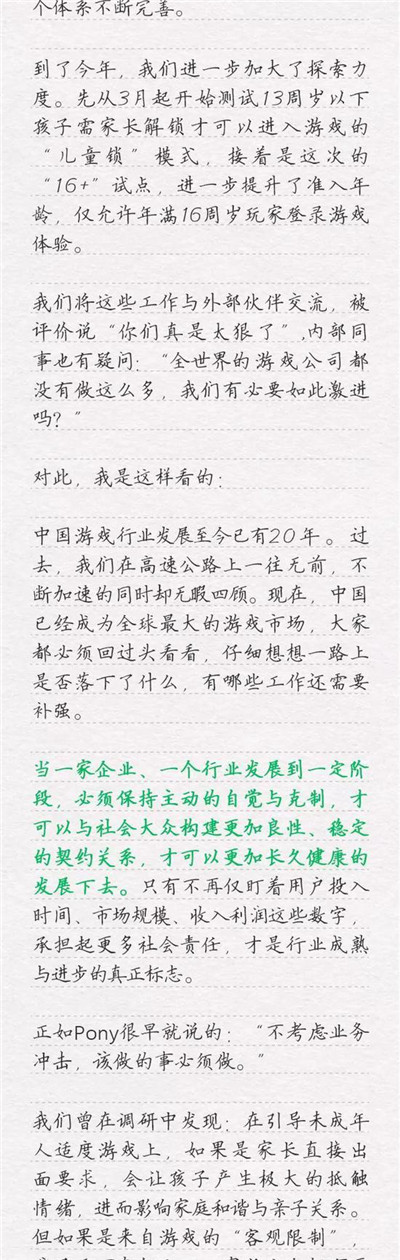 个体系不断完善。
到了今年，我们进一步加大了探索力
度。先从3月起开始测试13周岁以下
孩子需家长解锁才可以进入游戏的
“儿童锁”模式，接着是这次的
“16+”试点，进一步提升了准入年
龄，仅允许年满16周岁玩家登录游戏
体验。
我们将这些工作与外部伙伴交流，被
评价说“你们真是太狠了”,内部同
事也有疑问：“全世界的游戏公司都
没有做这么多，我们有必要如此激进
吗？”
对此，我是这样看的：
中国游戏行业发展至今已有20年。过
去，我们在高速公路上一往无前，不
断加速的同时却无暇四顾。现在，中国
已经成为全球最大的游戏市场，大家
都必须回过头看看，仔细想想一路上
是否落下了什么，有哪些工作还需要
补强。
当一家企业、一个行业发展到一定阶
段，必须保持主动的自觉与克制，才
可以与社会大众构建更加良性、稳定
的契约关系，才可以更加长久健康的
发展下去。只有不再仅盯着用户投入
时间、市场规模、收入利润这些数字，
承担起更多社会责任，才是行业成熟
与进步的真正标志。
正如Pony很早就说的：“不考虑业务
冲击，该做的事必须做。”
我们曾在调研中发现：在引导未成年
人适度游戏上，如果是家长直接出
面要求，会让孩子产生极大的抵触
情绪，进而影响家庭和谐与亲子关系。
但如果是来自游戏的“客观限制”，